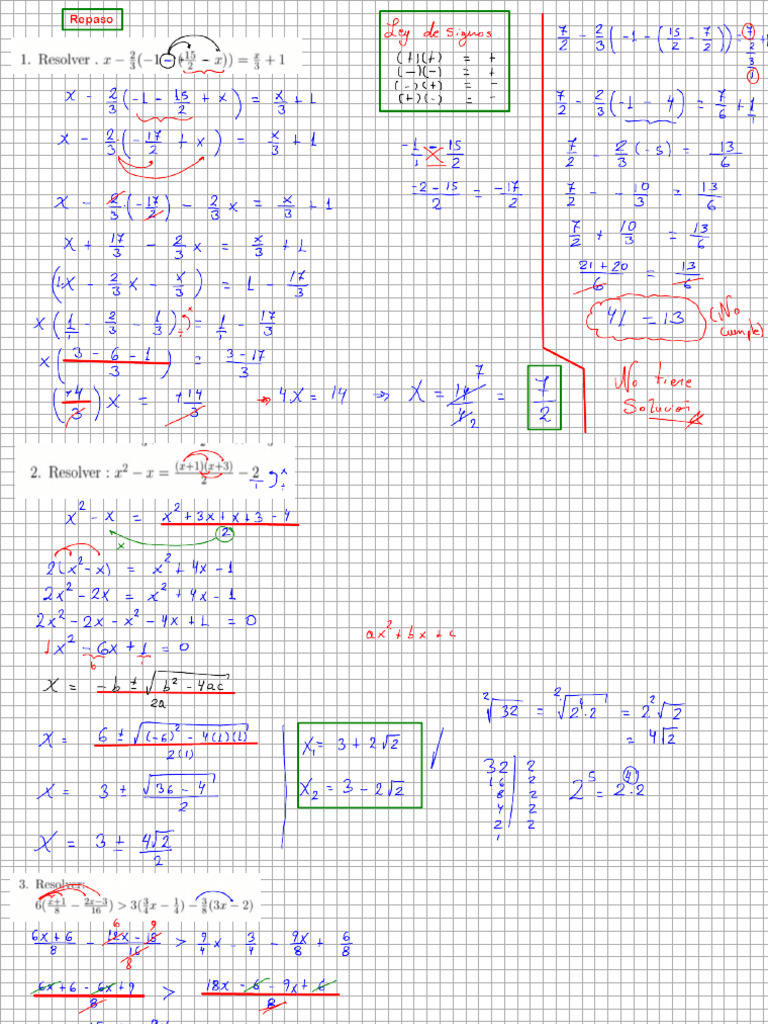 Repaso
1. Resolver . x − 2/3(−1 − (15/2 − x)) = x/3 + 1
x − 2/3(−1 − 15/2 + x) = x/3 + 1
x − 2/3·(−17/2 + x) = x/3 + 1
x − 2/3·(−17/2) − 2/3 x = x/3 + 1
x + 17/3 − 2/3 x = x/3 + 1
(1·x − 2/3 x − x/3) = 1 − 17/3
x(1/1 − 2/3 − 1/3) = 1/1 − 17/3
x((3 − 6 − 1)/3) = (3 − 17)/3
(+4/3)x = +14/3 ⇒ 4x = 14 ⇒ x = 14/4 = 7/2
7
2
Ley de signos
(+)(+) = +
(−)(−) = +
(−)(+) = −
(+)(−) = −
−1/1 − 15/2
(−2 − 15)/2 = −17/2
7/2 − 2/3(−1 − (15/2 − 7/2)) = 7/2/3 + 1
7/2 − 2/3(−1 − 4) = 7/6 + 1/1
7/2 − 2/3(−5) = 13/6
7/2 − − 10/3 = 13/6
7/2 + 10/3 = 13/6
(21 + 20)/6 = 13/6
41 = 13 (No cumple)
No tiene
Solución
2. Resolver : x² − x = (x+1)(x+3)/2 − 2
x² − x = (x² + 3x + x + 3 − 4)/2
2(x² − x) = x² + 4x − 1
2x² − 2x = x² + 4x − 1
2x² − 2x − x² − 4x + 1 = 0
1x² − 6x + 1 = 0
b
ax² + bx + c
x = (−b ± √(b² − 4ac))/2a
x = (6 ± √((−6)² − 4(1)(1)))/2(1)
x = 3 ± √(36 − 4)/2
x = 3 ± 4√2/2
x₁ = 3 + 2√2
x₂ = 3 − 2√2
²√32 = ²√(2⁴·2) = 2²√2
= 4√2
32 | 2
16 | 2
8 | 2
4 | 2
2 | 2
1
2⁵ = 2⁴·2
3. Resolver:
6((x+1)/8 − (2x−3)/16) > 3(3/4 x − 1/4) − 3/8(3x − 2)
(6x + 6)/8 − (12x − 18)/16 > 9/4 x − 3/4 − 9x/8 + 6/8
6 9
8
(6x + 6 − 6x + 9)/8 > (18x − 6 − 9x + 6)/8